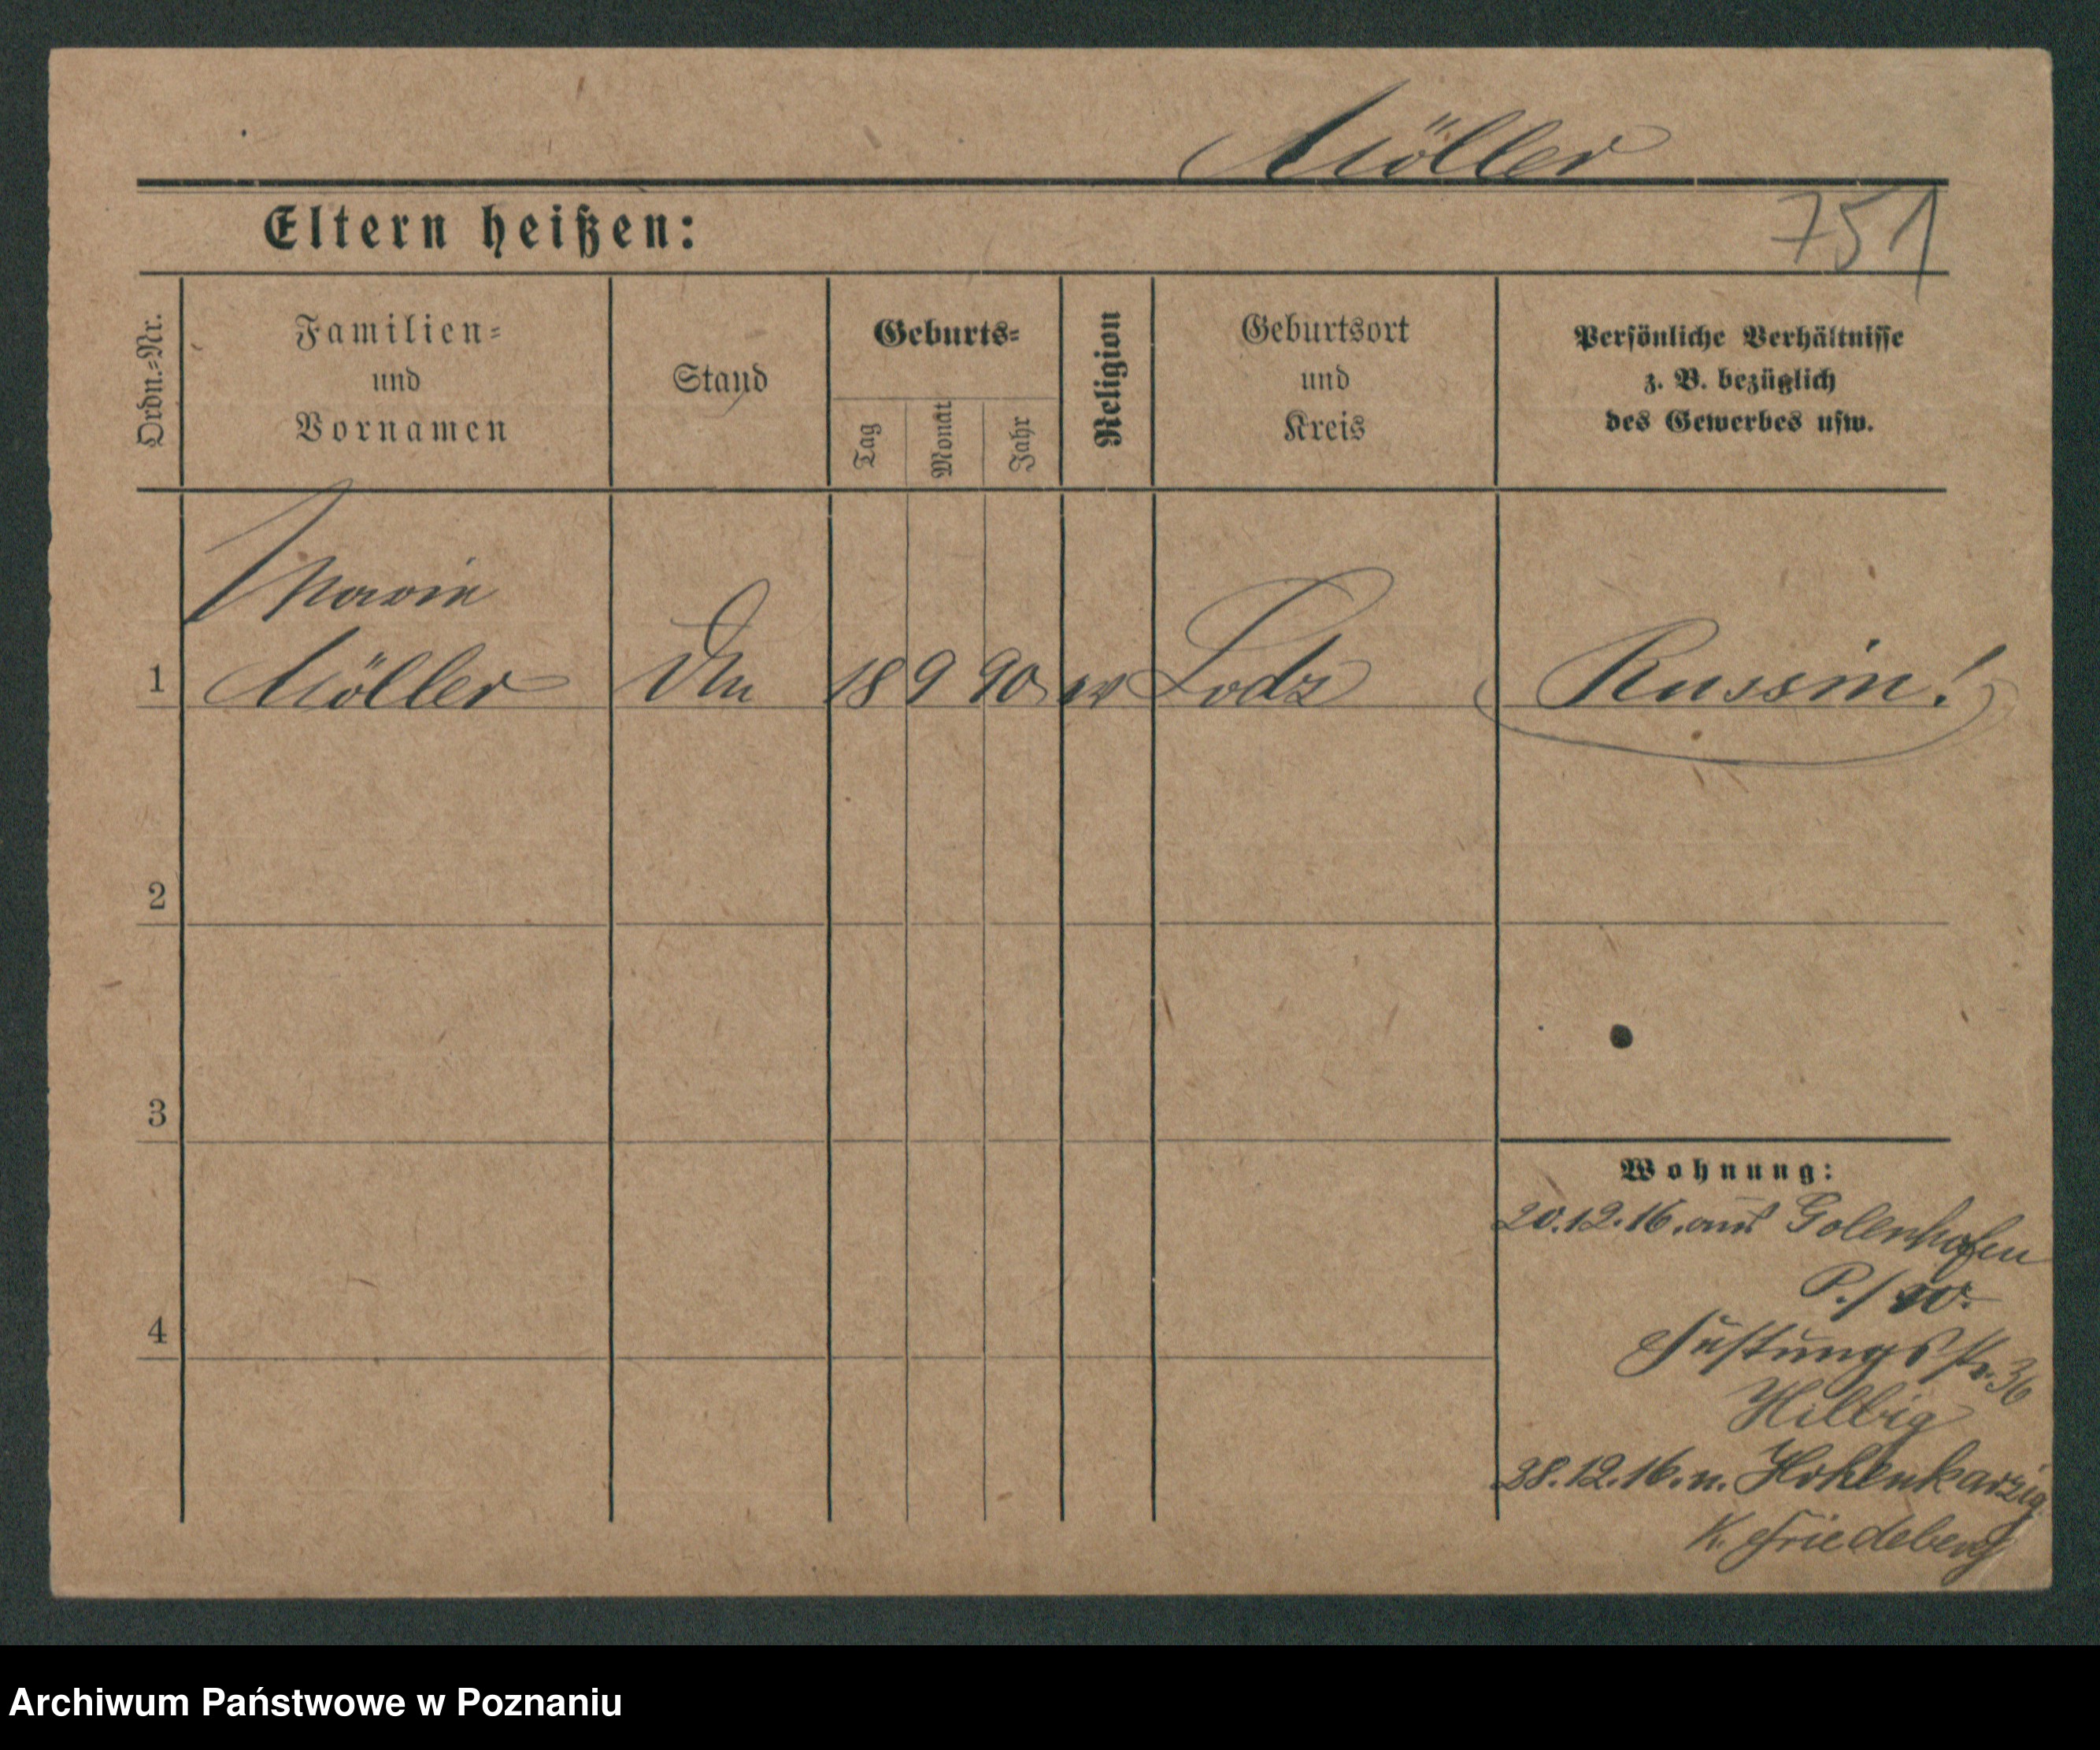 Möller
Eltern heißen:
751
Ordn.-Nr.
Familien-
und
Vornamen
Stand
Geburts-
Tag
Monat
Jahr
Religion
Geburtsort
und
Kreis
Persönliche Verhältnisse
z. B. bezüglich
des Gewerbes usw.
Marie
1 Möller 18 9 90 Lodz Russin!
2
3
4
Wohnung:
20.12.16. aus Golenhofen
P./W.
Festungsstr. 36
Hilbig
28.12.16. n. Hohenkarzig
K. Friedeberg
Archiwum Państwowe w Poznaniu